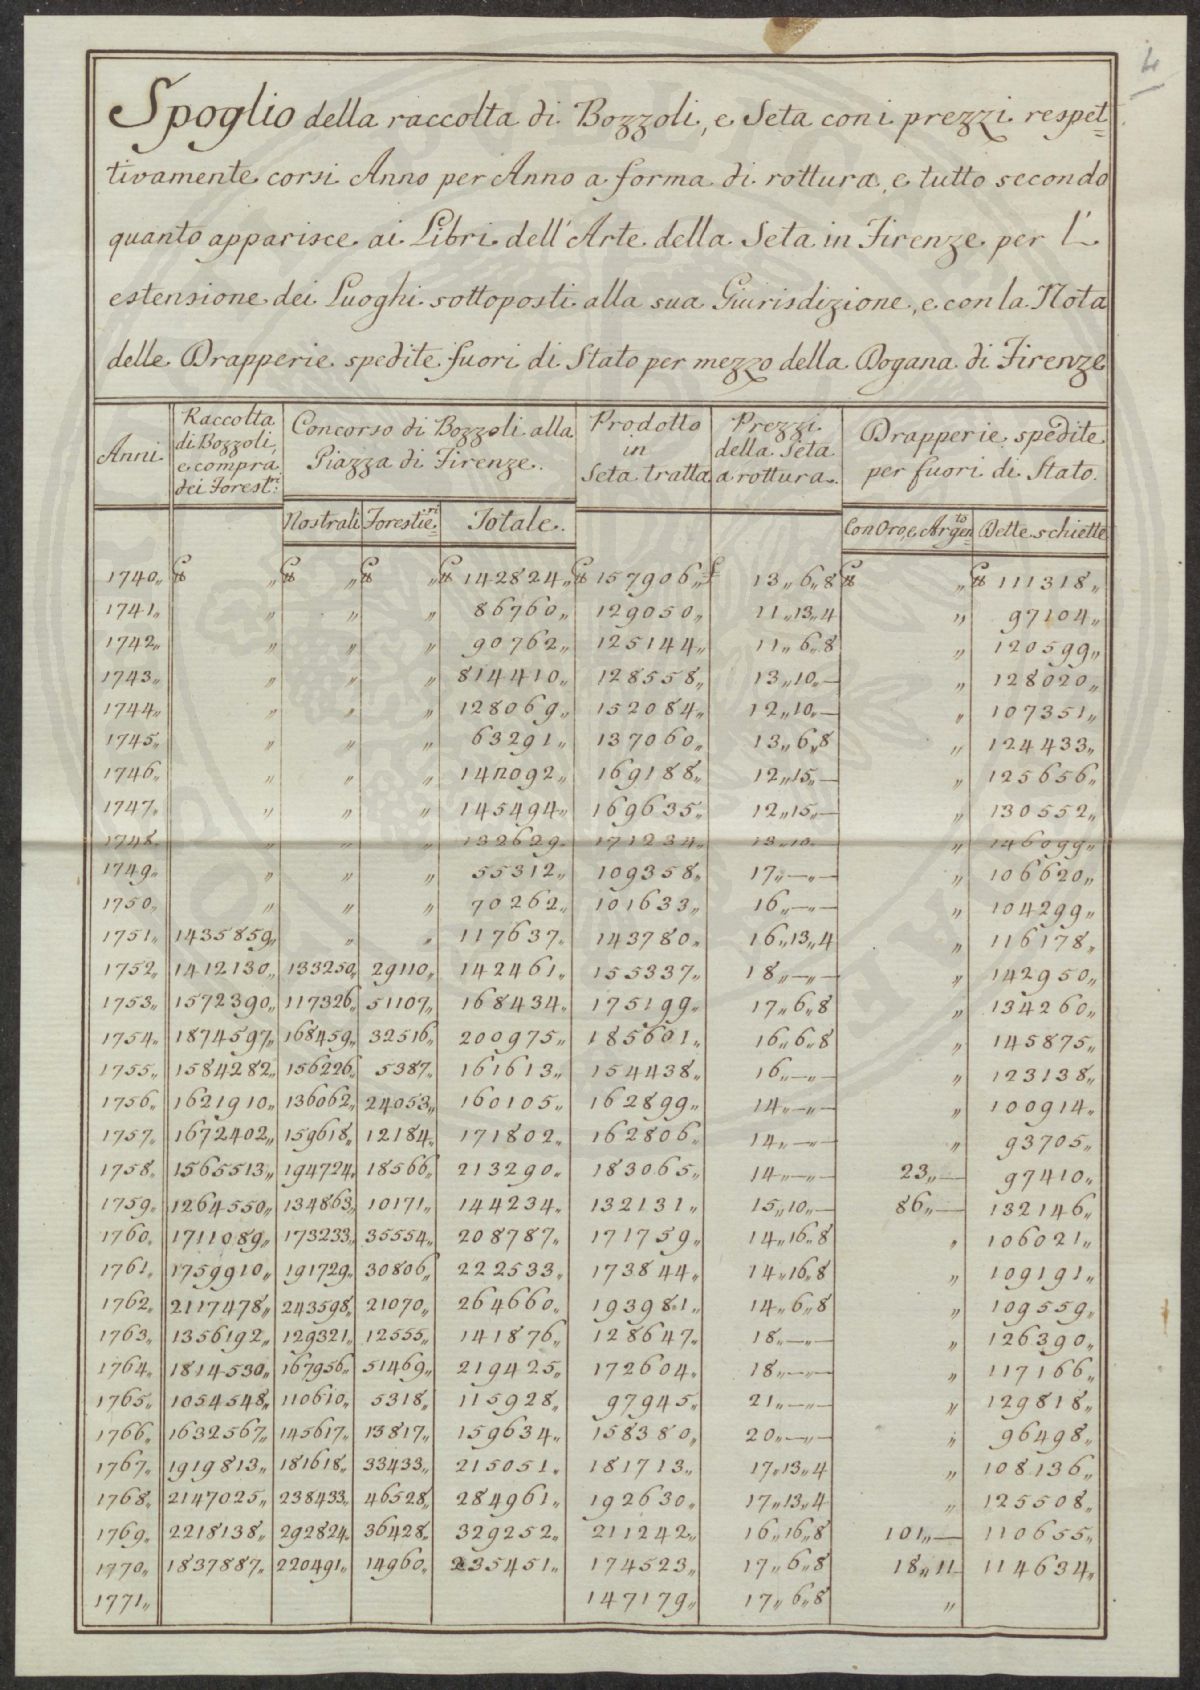 4
Spoglio della raccolta di Bozzoli, e Seta con i prezzi respet=
tivamente corsi Anno per Anno a forma di rottura, e tutto secondo
quanto apparisce ai Libri dell'Arte della Seta in Firenze per l'
estensione dei Luoghi sottoposti alla sua Giurisdizione, e con la Nota
delle Drapperie spedite fuori di Stato per mezzo della Dogana di Firenze
Anni Raccolta di Bozzoli, e compra dei Forest.ri Concorso di Bozzoli alla Piazza di Firenze. Prodotto in Seta tratta Prezzi della Seta a rottura. Drapperie spedite per fuori di Stato.
Nostrali Forestie.ri Totale. Con Oro, e Argen.to Dette schiette
1740,, ℔ ,, ℔ ,, ℔ ,, ℔ 142824,, ℔ 157906,, £ 13,, 6,, 8 ℔ ,, ℔ 111318,,
1741,, ,, ,, ,, 86760,, 129050,, 11,, 13,, 4 ,, 97104,,
1742,, ,, ,, ,, 90762,, 125144,, 11,, 6,, 8 ,, 120599,,
1743,, ,, ,, ,, 814410,, 128558,, 13,, 10,, — ,, 128020,,
1744,, ,, ,, ,, 128069,, 152084,, 12,, 10,, — ,, 107351,,
1745,, ,, ,, ,, 63291,, 137060,, 13,, 6,, 8 ,, 124433,,
1746,, ,, ,, ,, 169188,, 12,, 15,, — ,, 125656,,
1747,, ,, ,, ,, 145494,, 169635,, 12,, 15,, — ,, 130552,,
1748,, ,, ,, ,, 132629,, 171234,, 13,, 10,, — ,, 146099,,
1749,, ,, ,, ,, 55312,, 109358,, 17,, — ,, — ,, 106620,,
1750,, ,, ,, ,, 70262,, 101633,, 16,, — ,, — ,, 104299,,
1751,, 1435859,, ,, ,, 117637,, 143780,, 16,, 13,, 4 ,, 116178,,
1752,, 1412130,, 133250,, 29110,, 142461,, 155337,, 18,, — ,, — ,, 142950,,
1753,, 1572390,, 117326,, 51107,, 168434,, 175199,, 17,, 6,, 8 ,, 134260,,
1754,, 1874597,, 168459,, 32516,, 200975,, 185601,, 16,, 6,, 8 ,, 145875,,
1755,, 1584282,, 156226,, 5387,, 161613,, 154438,, 16,, — ,, — ,, 123138,,
1756,, 1621910,, 136062,, 24053,, 160105,, 162899,, 14,, — ,, — ,, 100914,,
1757,, 1672402,, 159618,, 12184,, 171802,, 162806,, 14,, — ,, — ,, 93705,,
1758,, 1565513,, 194724,, 18566,, 213290,, 183065,, 14,, — ,, — 23,, — 97410,,
1759,, 1264550,, 134863,, 10171,, 144234,, 132131,, 15,, 10,, — 86,, — 132146,,
1760,, 1711089,, 173233,, 35554,, 208787,, 171759,, 14,, 16,, 8 ,, 106021,,
1761,, 1759910,, 191729,, 30806,, 222533,, 173844,, 14,, 16,, 8 ,, 109191,,
1762,, 2117478,, 243598,, 21070,, 264660,, 193981,, 14,, 6,, 8 ,, 109559,,
1763,, 1356192,, 129321,, 12555,, 141876,, 128647,, 18,, — ,, — ,, 126390,,
1764,, 1814530,, 167956,, 51469,, 219425,, 172604,, 18,, — ,, — ,, 117166,,
1765,, 1054548,, 110610,, 5318,, 115928,, 97945,, 21,, — ,, — ,, 129818,,
1766,, 1632567,, 145617,, 13817,, 159634,, 158380,, 20,, — ,, — ,, 96498,,
1767,, 1919813,, 181618,, 33433,, 215051,, 181713,, 17,, 13,, 4 ,, 108136,,
1768,, 2147025,, 238433,, 46528,, 284961,, 192630,, 17,, 13,, 4 ,, 125508,,
1769,, 2218138,, 292824,, 36428,, 329252,, 211242,, 16,, 16,, 8 101,, — 110655,,
1770,, 1837887,, 220491,, 14960,, 235451,, 174523,, 17,, 6,, 8 18,, 11 114634,,
1771,, 147179,, 17,, 6,, 8 ,,